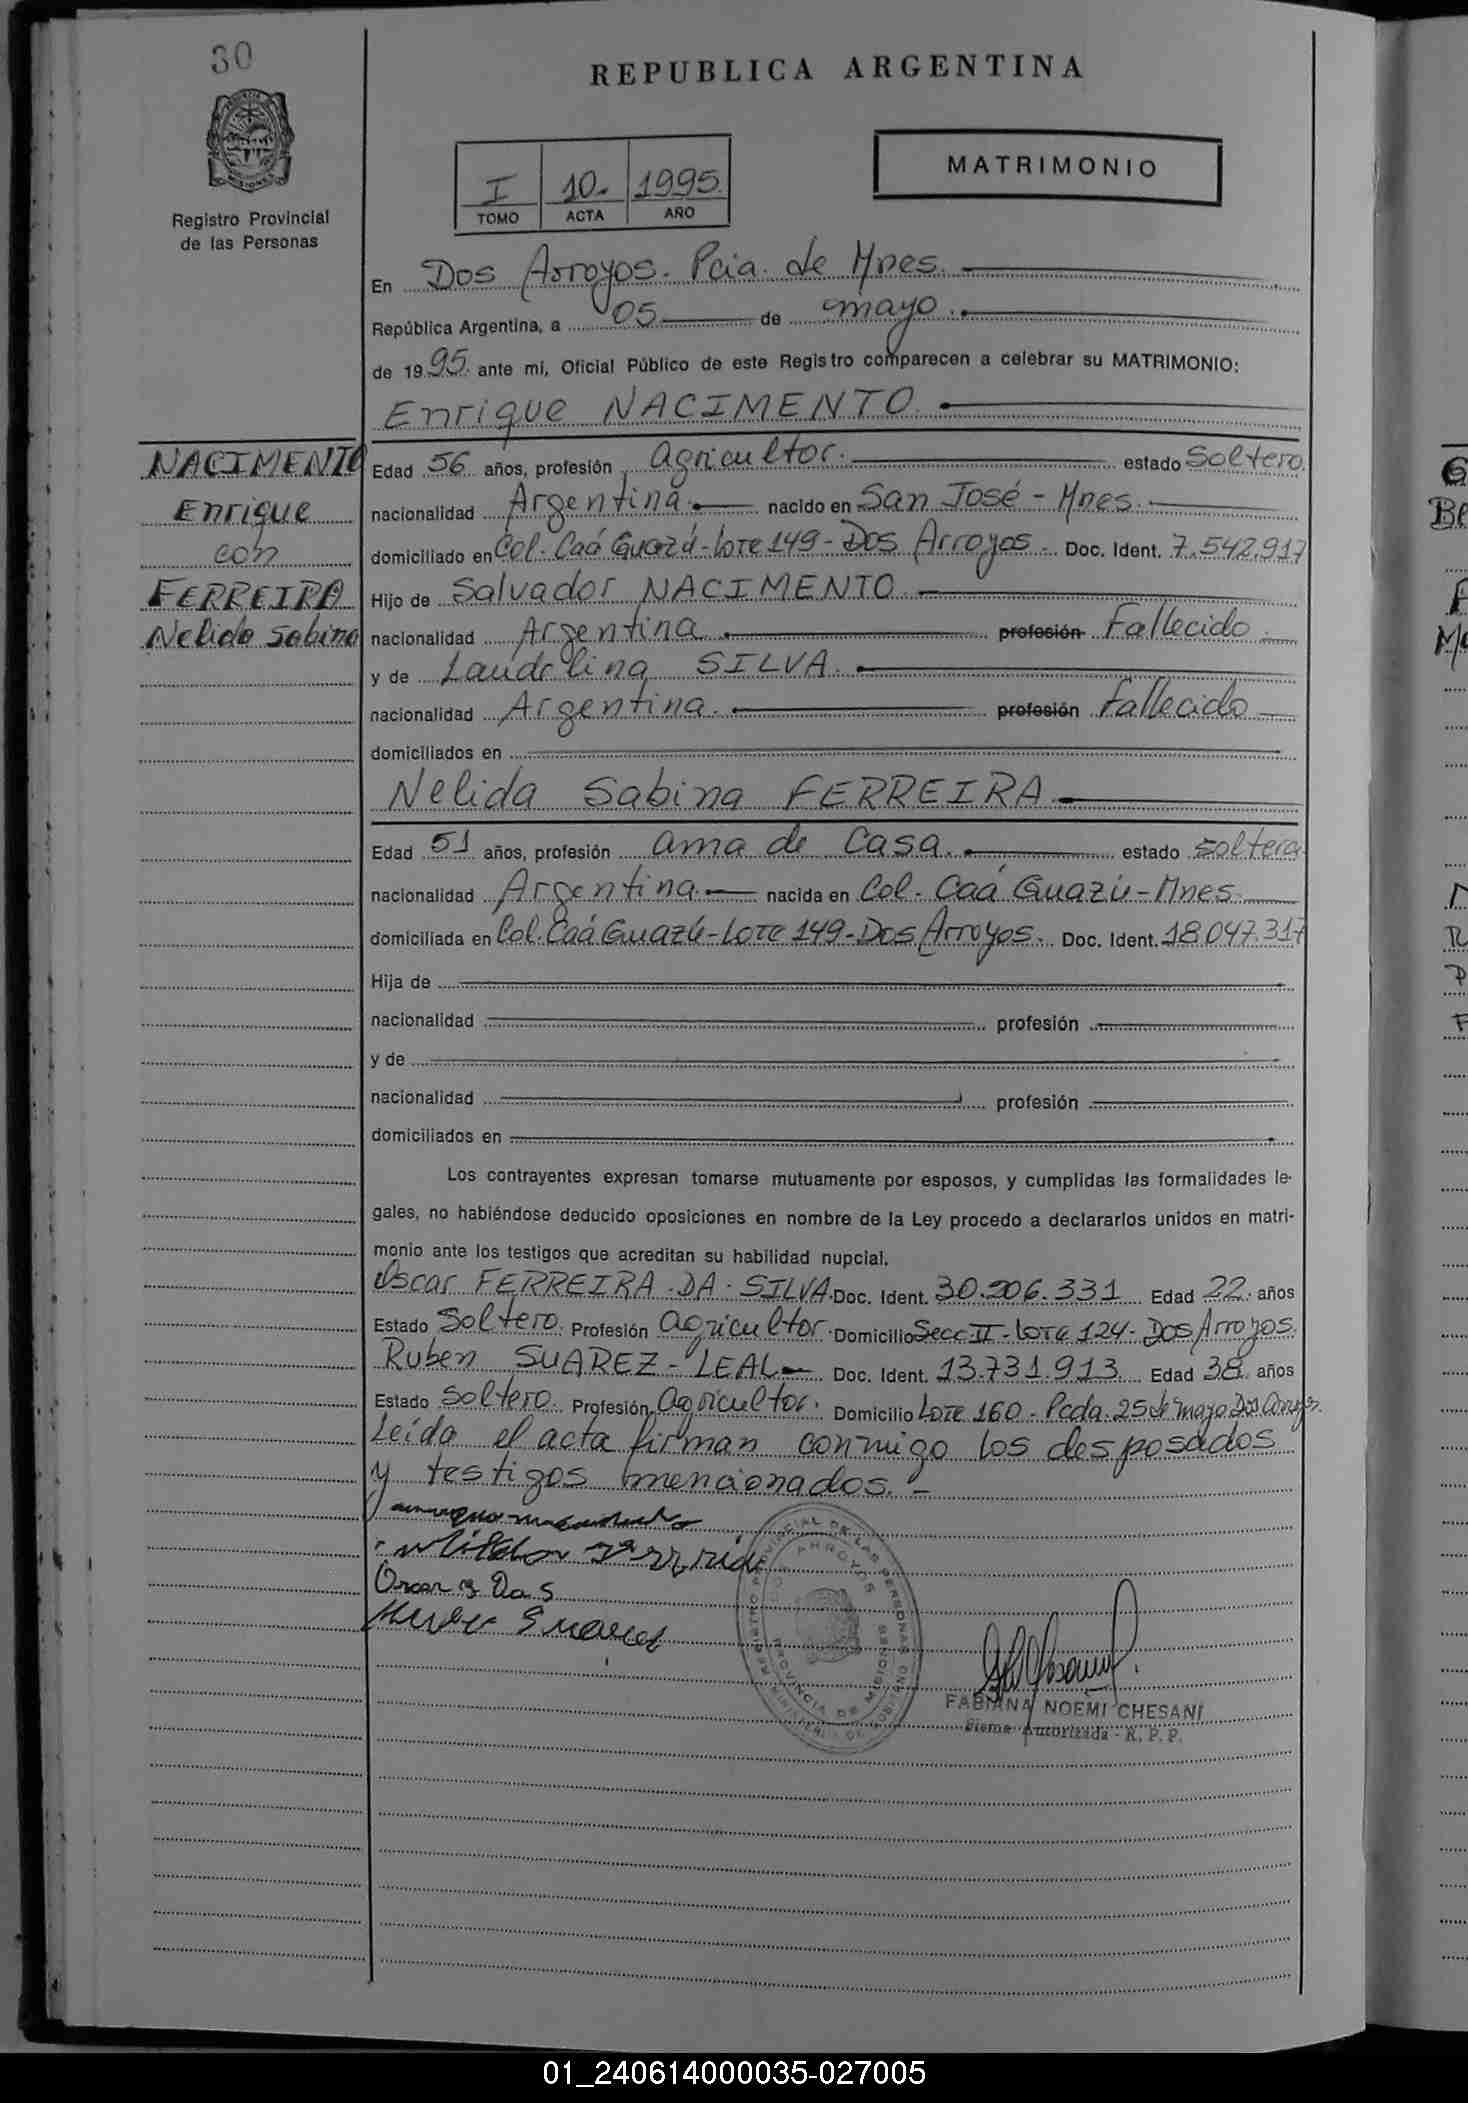 30
REPUBLICA ARGENTINA
MATRIMONIO
I 10. 1995.
TOMO ACTA AÑO
Registro Provincial
de las Personas
En Dos Arroyos. Pcia. de Mnes.
República Argentina, a 05 de mayo.
de 1995. ante mi, Oficial Público de este Registro comparecen a celebrar su MATRIMONIO:
Enrique NACIMENTO.
NACIMENTO
Enrique
con
FERREIRA
Nelida Sabina
Edad 56 años, profesión Agricultor. estado Soltero.
nacionalidad Argentina. nacido en San José - Mnes.
domiciliado en Col. Caá Guazú - Lote 149 - Dos Arroyos. Doc. Ident. 7.542.917
Hijo de Salvador NACIMENTO
nacionalidad Argentina. profesión Fallecido.
y de Laudelina SILVA.
nacionalidad Argentina. profesión Fallecido
domiciliados en
Nelida Sabina FERREIRA
Edad 51 años, profesión ama de Casa. estado soltera
nacionalidad Argentina. nacida en Col. Caá Guazú - Mnes.
domiciliada en Col. Caá Guazú - Lote 149 - Dos Arroyos. Doc. Ident. 18.047.317
Hija de
nacionalidad profesión
y de
nacionalidad profesión
domiciliados en
Los contrayentes expresan tomarse mutuamente por esposos, y cumplidas las formalidades le-
gales, no habiéndose deducido oposiciones en nombre de la Ley procedo a declararlos unidos en matri-
monio ante los testigos que acreditan su habilidad nupcial.
Oscar FERREIRA DA SILVA. Doc. Ident. 30.206.331 Edad 22. años
Estado Soltero. Profesión agricultor. Domicilio Secc II - Lote 124 - Dos Arroyos.
Ruben SUAREZ - LEAL Doc. Ident. 13.731.913 Edad 38 años
Estado Soltero. Profesión Agricultor. Domicilio Lote 160 - Pcda. 25 de mayo Dos Arroyos.
Leída el acta firman conmigo los desposados
y testigos mencionados. -
Oscar Da S
REGISTRO PROVINCIAL DE LAS PERSONAS
DOS ARROYOS
PROVINCIA DE MISIONES
MINISTERIO DE GOBIERNO
FABIANA NOEMI CHESANI
Firma Autorizada - R. P. P.
01_240614000035-027005